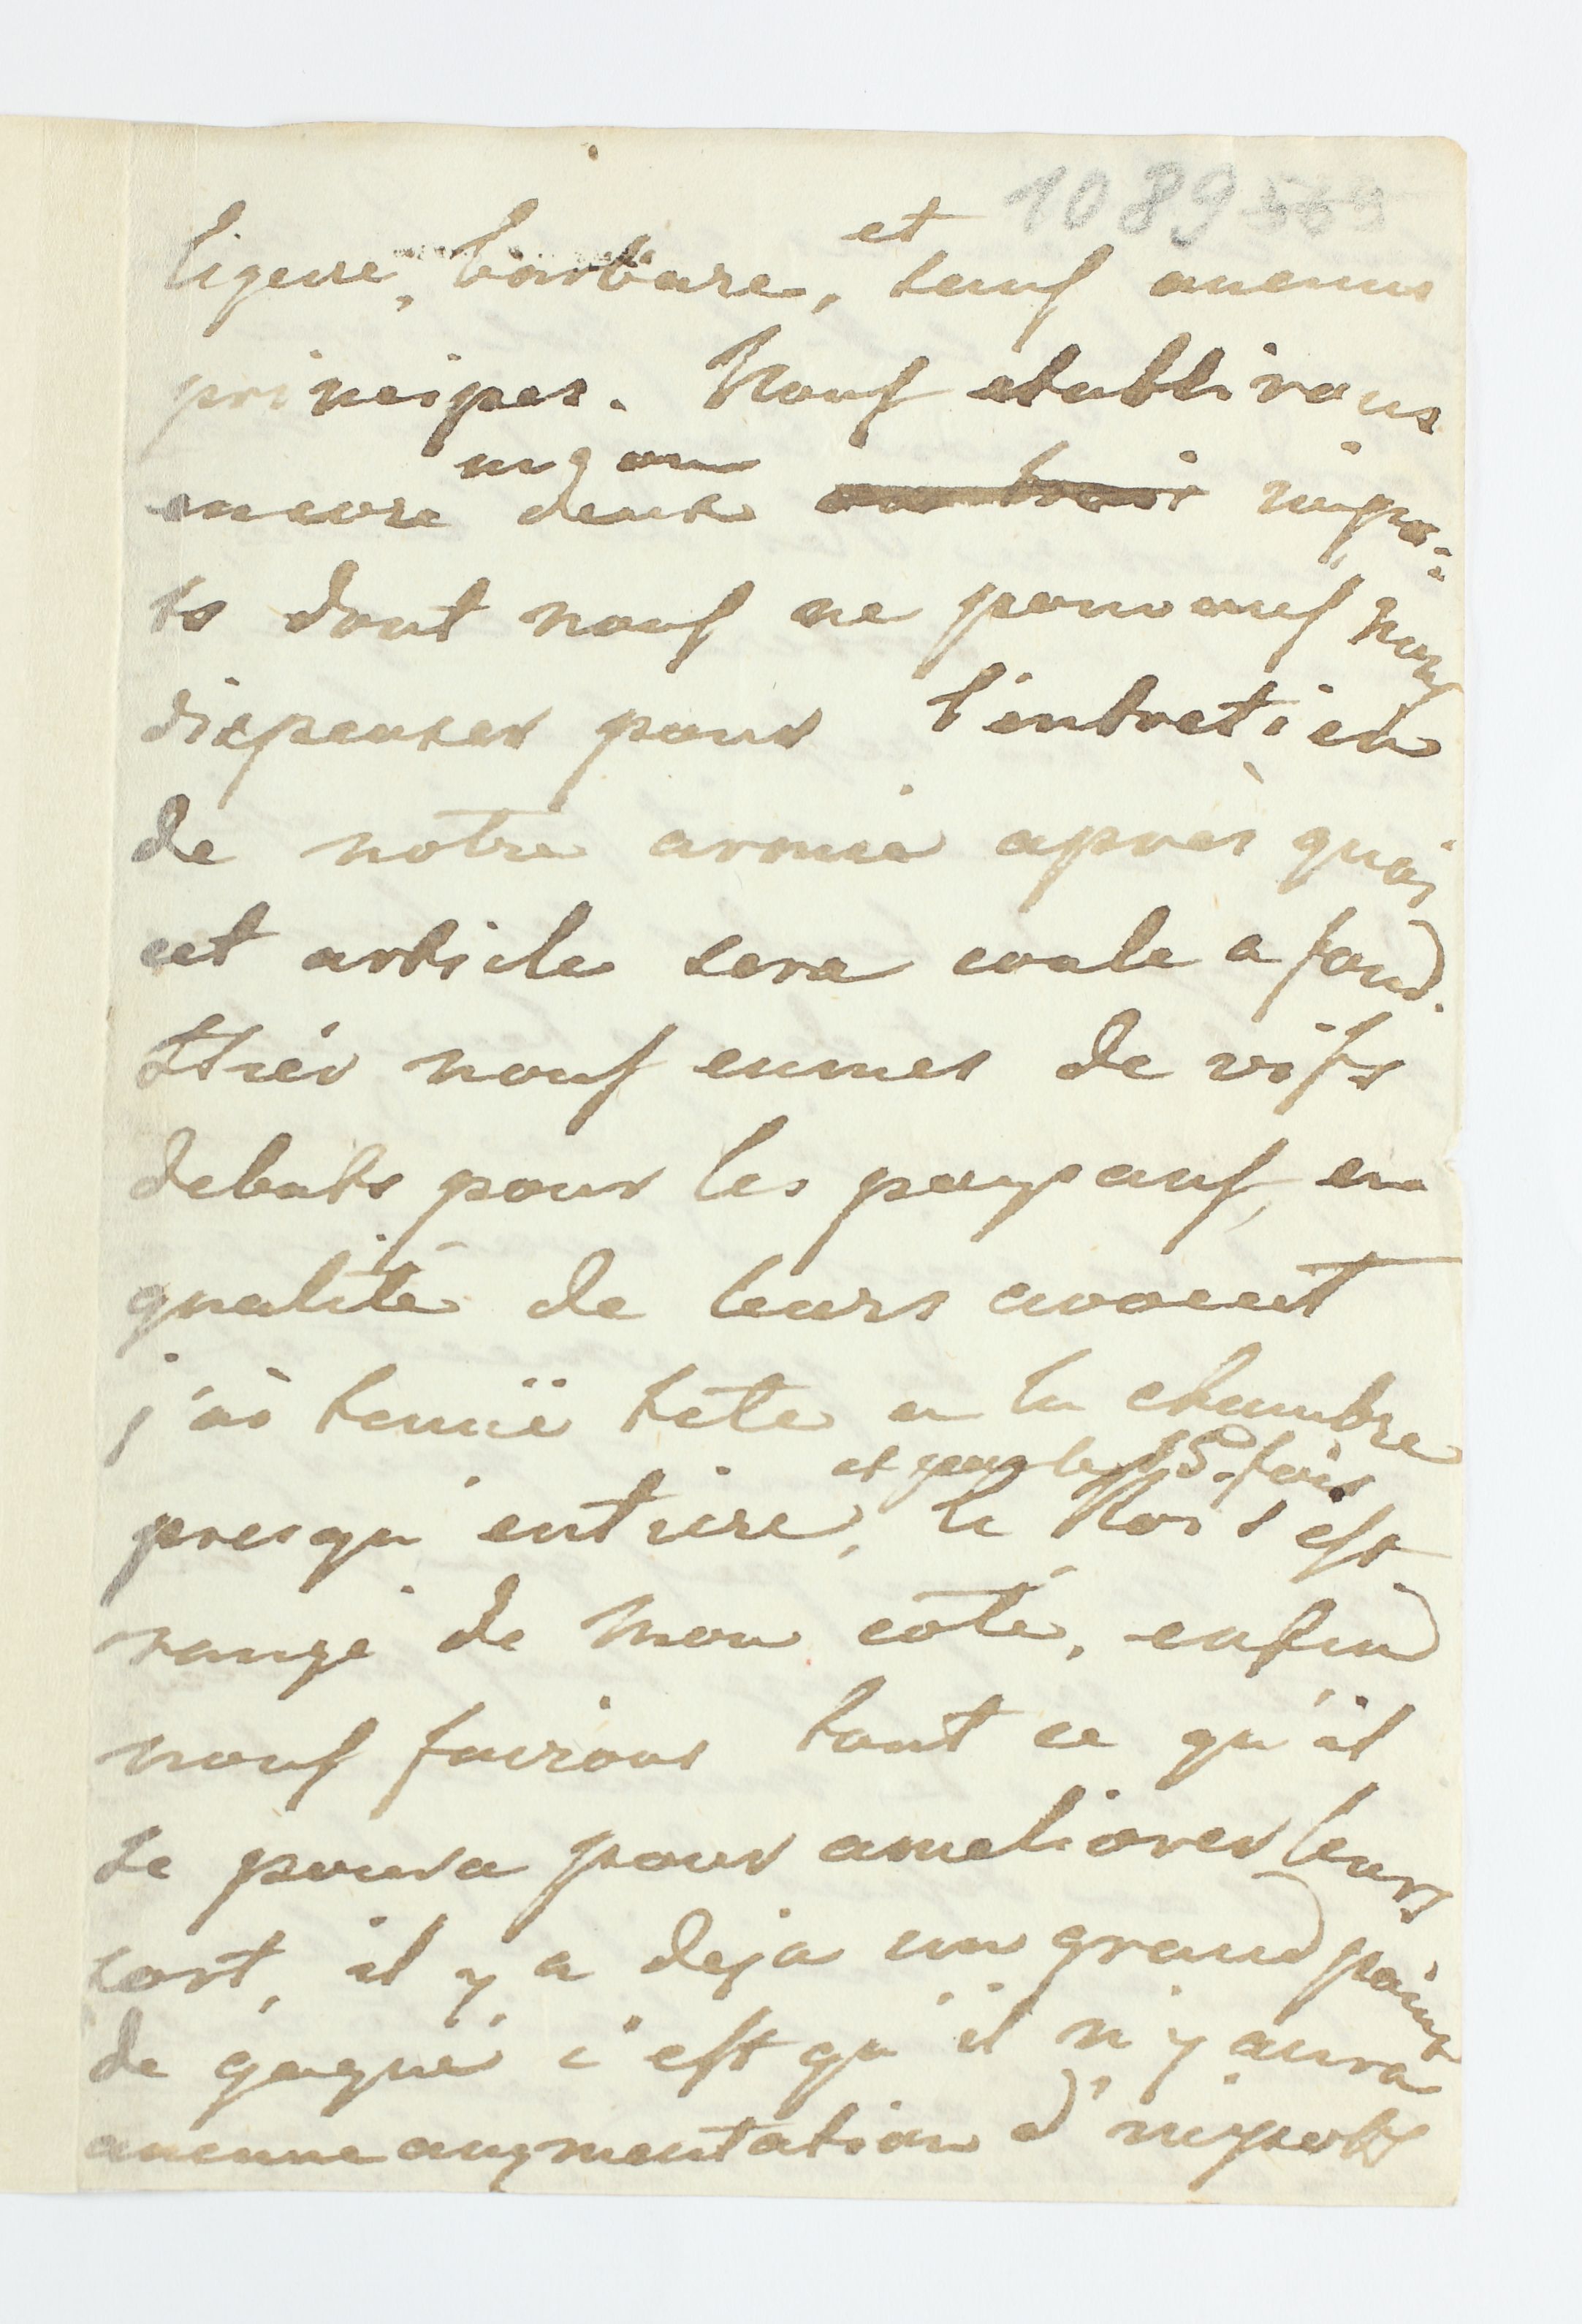 1089 569
ligene, barbare, et sans aucuns
principes. Nous etablirons
encore un ou deux ou trois impo=
ts dont nous ne pouvons nous
dispenser pour l'entretien
de notre armée après quoi
cet article sera coule a fond.
Hier nous eumes de vifs
debats pour les paysans, en
qualité de leurs avocat
j'ai tenüe tete a la chambre
presqu entiere, et pour la 15. fois le Roi s'est
rangé de mon coté, enfin
nous fairons tout ce qu'il
se poura pour ameliorer leurs
sort, il y a deja un grand point
de gagné c'est qu'il n'y aura
aucune augmentation d'impots